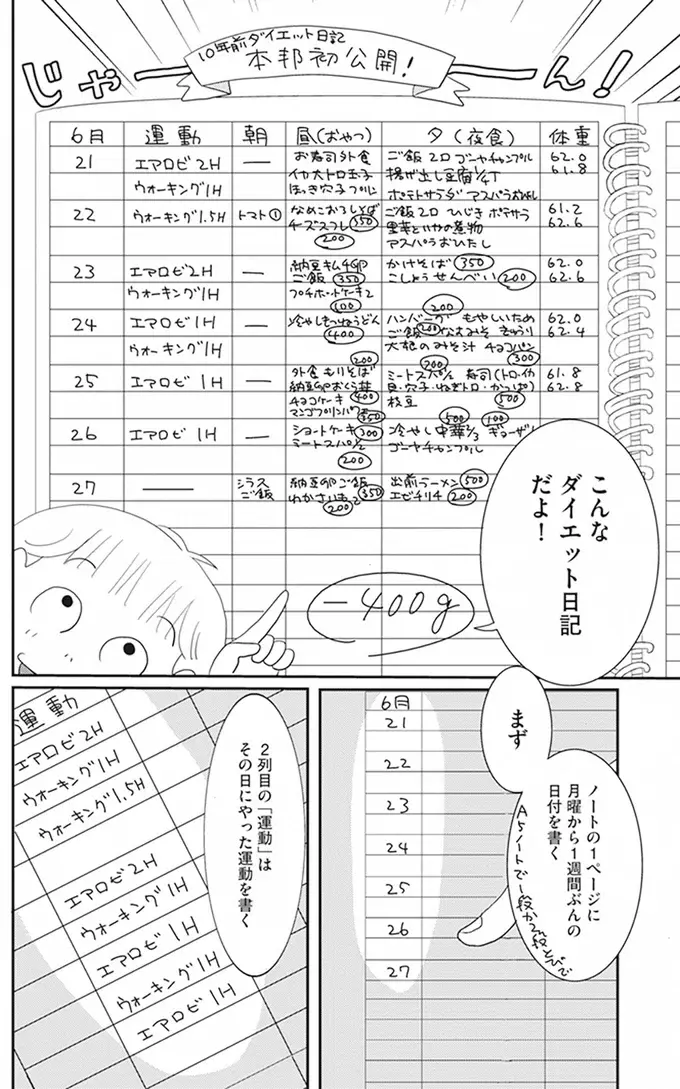 10年前ダイエット日記
本邦初公開!
じゃーーん!
6月 運動 朝 昼(おやつ) 夕(夜食) 体重
21 エアロビ2H — お寿司外食 ご飯2口 ゴーヤチャンプル 62.0
イカ大トロ玉子 揚げ出し豆腐1/4丁 61.8
ウォーキング1H ほっき穴子 ポテトサラダ アスパラおひたし
22 ウォーキング1.5H トマト① なめこおろしそば ご飯2口 ひじき ポテサラ 61.2
チーズスフレ 350 里芋といかの煮物 62.6
200 アスパラおひたし
23 エアロビ2H — 納豆キムチ卵 かけそば 350 62.0
ご飯 350 こしょうせんべい 200 62.6
ウォーキング1H プチホットケーキ2
100 200
24 エアロビ1H — 冷やしきつねうどん ハンバーグ もやしいため 62.0
400 ご飯 200 なすみそ きゅうり 62.4
ウォーキング1H 大根のみそ汁 チョコパン
200 200 300
25 エアロビ1H — 外食もりそば ミートスパ1/2 寿司(トロ・イカ 61.8
納豆卵おくら丼 貝・穴子・ねぎトロ・かっぱ) 62.8
チョコケーキ 400 枝豆 500
マンゴプリンパフェ 350 500 100
26 エアロビ1H — ショートケーキ 300 冷やし中華2/3 ギョーザ
ミートスパ1/2 ゴーヤチャンプル
200
27 — シラス 納豆卵ご飯 出前ラーメン 500
ご飯 わかさいも2 350 エビチリ4 200
200
こんな
ダイエット日記
だよ!
−400g
まず
ノートの1ページに
月曜から1週間ぶんの
日付を書く
A5ノートで1段から2段とびで
6月
21
22
23
24
25
26
27
2列目の「運動」は
その日にやった運動を書く
運動
エアロビ2H
ウォーキング1H
ウォーキング1.5H
エアロビ2H
ウォーキング1H
エアロビ1H
ウォーキング1H
エアロビ1H